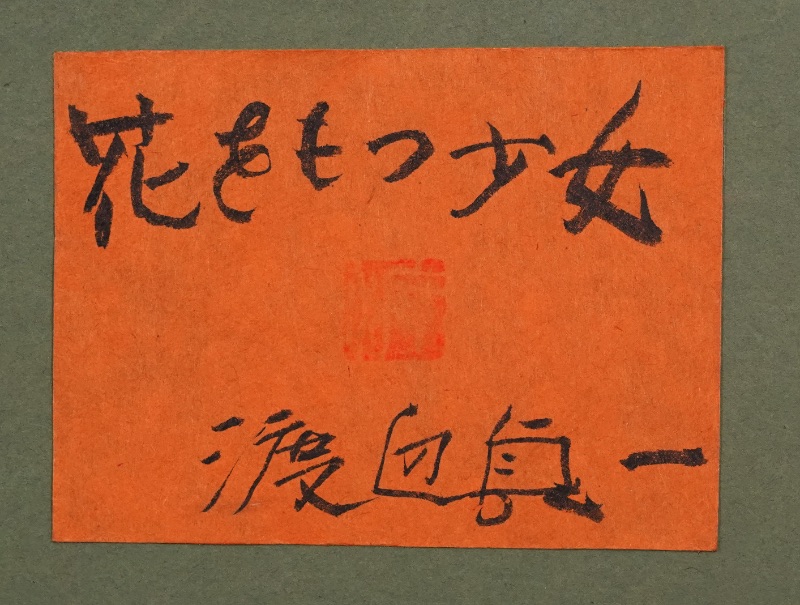 花をもつ少女
渡辺真一